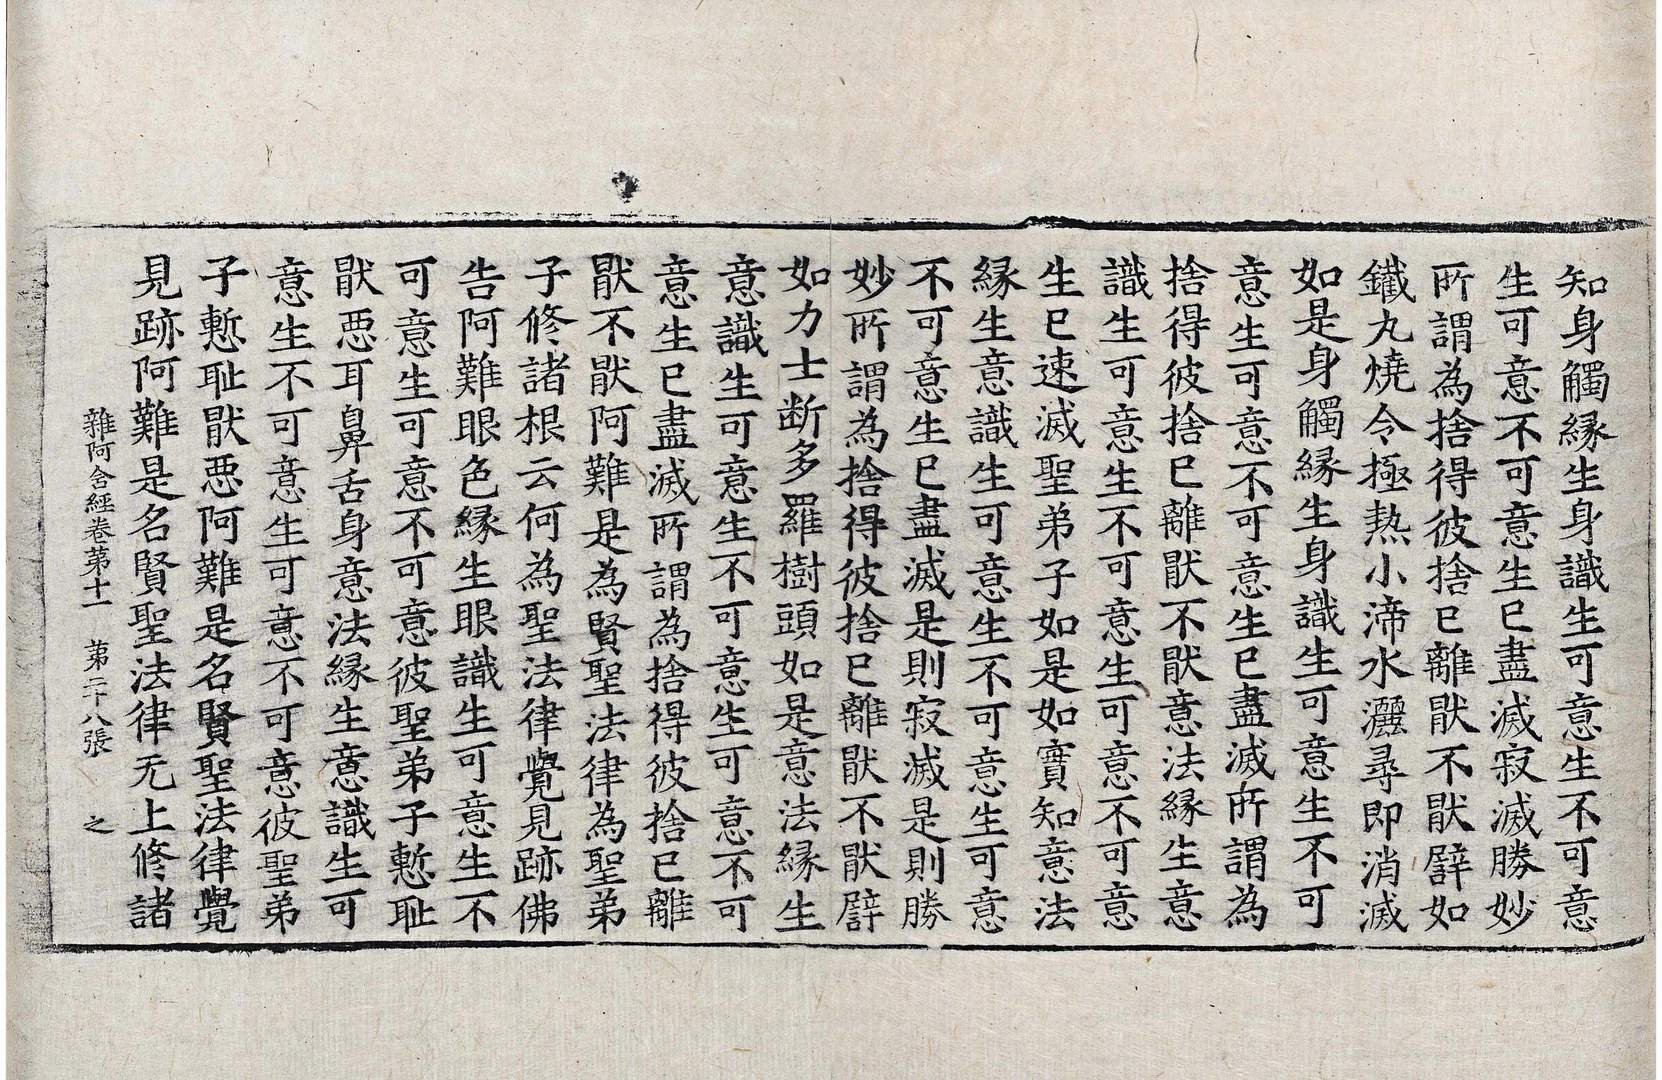 知身觸縁生身識生可意生不可意
生可意不可意生已盡滅寂滅勝妙
所謂為捨得彼捨已離猒不猒譬如
鐵丸燒令極熱小渧水灑尋即消滅
如是身觸縁生身識生可意生不可
意生可意不可意生已盡滅所謂為
捨得彼捨已離猒不猒意法縁生意
識生可意生不可意生可意不可意
生已速滅聖弟子如是如實知意法
縁生意識生可意生不可意生可意
不可意生已盡滅是則寂滅是則勝
妙所謂為捨得彼捨已離猒不猒譬
如力士断多羅樹頭如是意法縁生
意識生可意生不可意生可意不可
意生已盡滅所謂為捨得彼捨已離
猒不猒阿難是為賢聖法律為聖弟
子修諸根云何為聖法律覺見跡佛
告阿難眼色縁生眼識生可意生不
可意生可意不可意彼聖弟子慙耻
猒惡耳鼻舌身意法縁生意識生可
意生不可意生可意不可意彼聖弟
子慙耻猒惡阿難是名賢聖法律覺
見跡阿難是名賢聖法律无上修諸
雜阿含經卷第十一　第二十八張　之